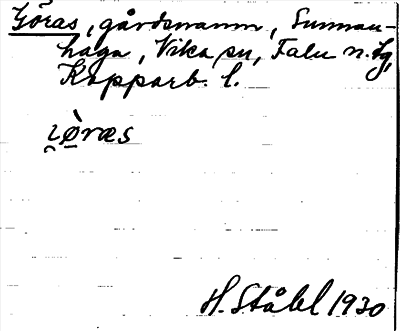 Göras, gårdsnamn, Sunnan-
haga, Vika sn, Falu n. tg,
Kopparb. l.
ɩ̯ø̀ræs
H. Ståhl 1930